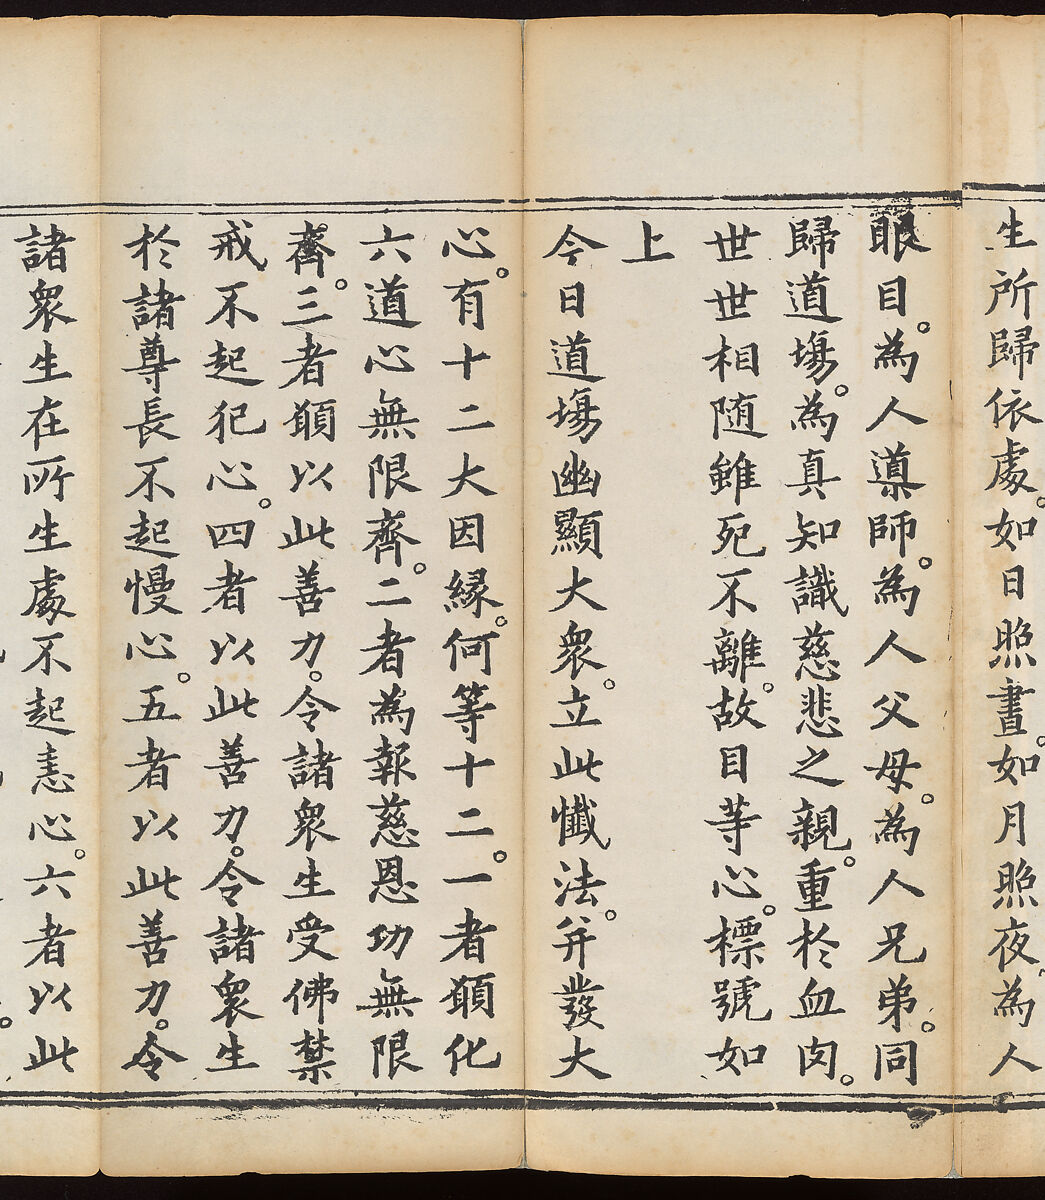 生所歸依處。如日照晝。如月照夜。為人
眼目。為人導師。為人父母。為人兄弟。同
歸道場。為真知識慈悲之親。重於血肉。
世世相随雖死不離。故目等心。標號如
上
今日道場幽顯大衆。立此懺法。并發大
心。有十二大因緣。何等十二。一者願化
六道心無限齊。二者為報慈恩功無限
齊。三者願以此善力。令諸衆生受佛禁
戒不起犯心。四者以此善力。令諸衆生
於諸尊長不起慢心。五者以此善力。令
諸衆生在所生處不起恚心。六者以此